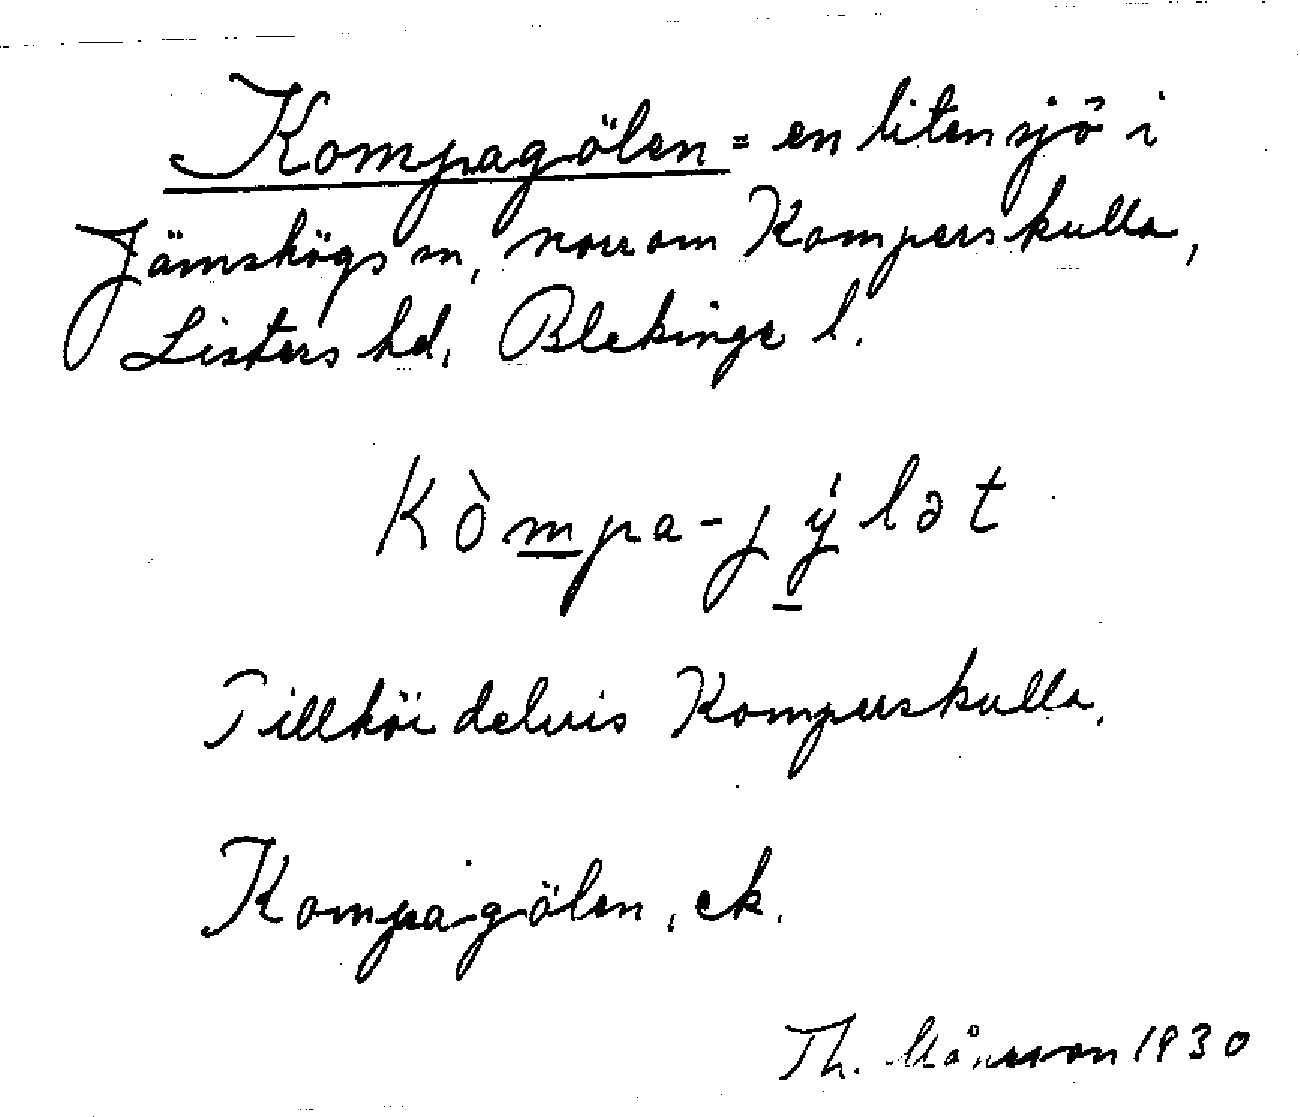 Kompagölen = en liten sjö i
Jämshögs sn, norr om Komperskulla,
Listers hd, Blekinge l.
Kòmpa-jýlət
Tillhör delvis Komperskulla.
Kompagölen, ek.
Th. Månsson 1930